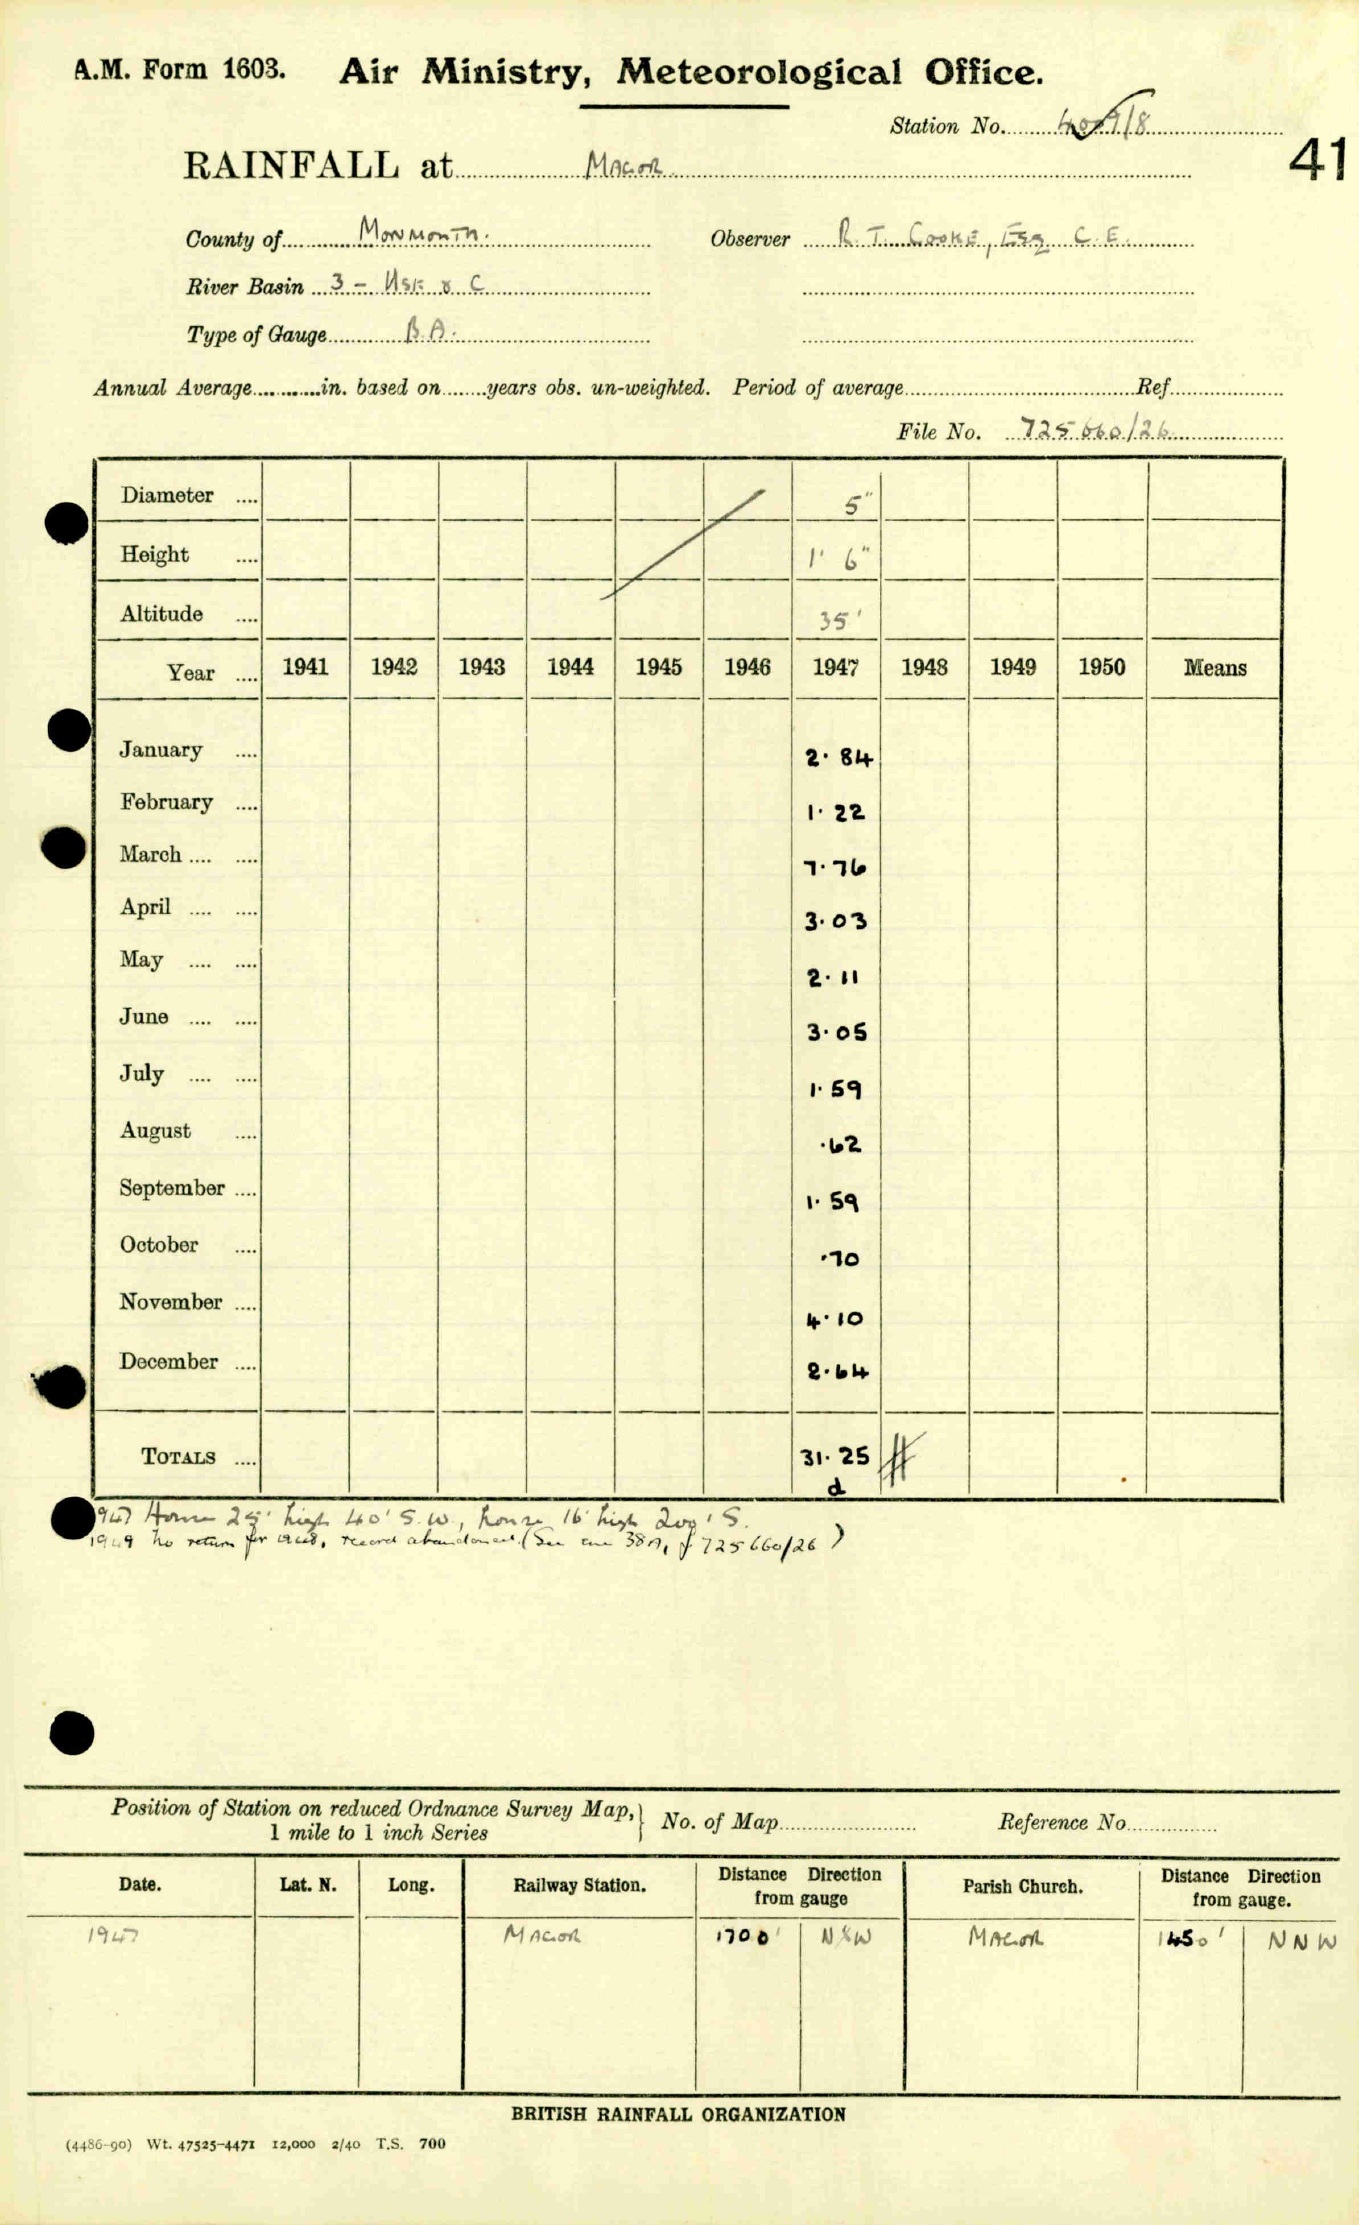 A.M. Form 1603. Air Ministry, Meteorological Office.
Station No. 4009/8
41
RAINFALL at Magor.
County of Monmouth. Observer R. T. Cooke, Esq C.E.
River Basin 3 - Usk & C
Type of Gauge B.A.
Annual Average in. based on years obs. un-weighted. Period of average Ref.
File No. 725660/26
Diameter 5"
Height 1' 6"
Altitude 35'
Year 1941 1942 1943 1944 1945 1946 1947 1948 1949 1950 Means
January 2.84
February 1.22
March 7.76
April 3.03
May 2.11
June 3.05
July 1.59
August .62
September 1.59
October .70
November 4.10
December 2.64
TOTALS 31.25 #
d
1947 House 25' high 40' S.W., house 16' high 200' S.
1949 No return for 1948, record abandoned. (See 38A, 725660/26)
Position of Station on reduced Ordnance Survey Map, } No. of Map Reference No.
1 mile to 1 inch Series
Date. Lat. N. Long. Railway Station. Distance Direction from gauge Parish Church. Distance Direction from gauge.
1947 Magor 1700' N×W Magor 1450' NNW
BRITISH RAINFALL ORGANIZATION
(4486-90) Wt. 47525-4471 12,000 2/40 T.S. 700